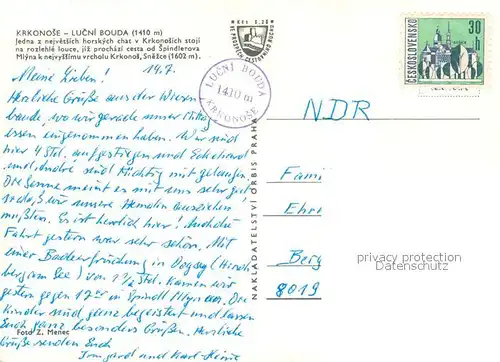 KRKONOŠE – LUČNÍ BOUDA (1410 m)
Jedna z největších horských chat v Krkonoších stojí
na rozlehlé louce, jíž prochází cesta od Špindlerova
Mlýna k nejvyššímu vrcholu Krkonoš, Sněžce (1602 m).
Kčs 0,20
VE PROSPĚCH CESTOVNÍHO RUCHU
LUČNÍ BOUDA
1410 m
KRKONOŠE
ČESKOSLOVENSKO
30 h
14.7.
Meine Lieben!
Herzliche Grüße aus der Wiesen-
baude, wo wir gerade unser Mittag-
essen eingenommen haben. Wir sind
hier 4 Std. aufgestiegen und Eckehard
und André sind tüchtig mit gelaufen.
Die Sonne meint es mit uns sehr gut,
sodaß wir unsere Hemden ausziehen
mußten. Es ist herrlich hier! Auch die
Fahrt gestern war sehr schön. Mit
einer Badeerfrischung in (Hirsch-
berg am See) von 1 1/2 Std. kamen wir
gestern gegen 17 Uhr in Spindl. Mlyn an. Die
Kinder sind ganz begeistert und lassen
Euch ganz besonders Grüßen. Herzliche
Grüße senden Euch
Irmgard und Karl-Heinz
Foto Z. Menec
NAKLADATELSTVÍ ORBIS PRAHA
NDR
Fami
Ehri
Berg
8019
privacy protection
Datenschutz